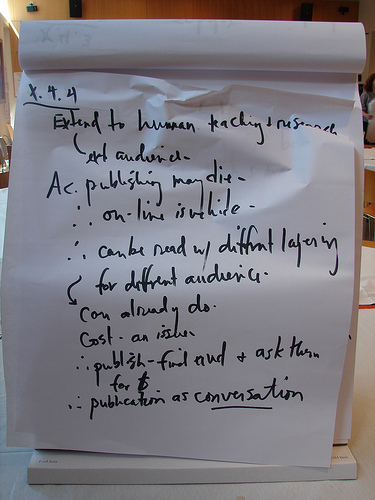 X.4.4
Extend to human teaching & research
ext audience.
Ac. publishing may die -
∴ on-line is vehicle -
∴ can be read w/ diffrnt layering
for different audience.
Can already do.
Cost - an issue.
∴ publish - find aud + ask them
for $
∴ publication as conversation